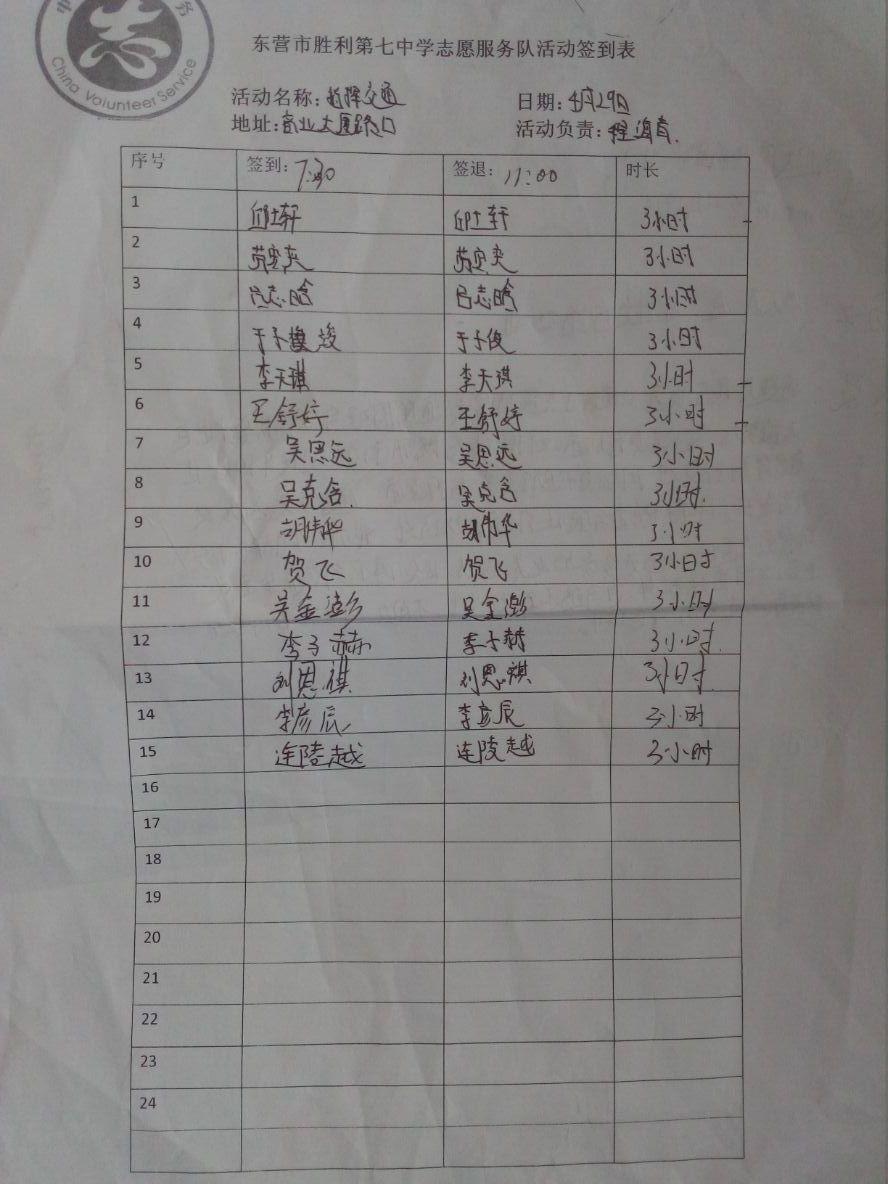 中 务
China Volunteer Service
东营市胜利第七中学志愿服务队活动签到表
活动名称:指挥交通 日期:4月29日
地址:商业大厦路口 活动负责:
序号 签到:7:30 签退:11:00 时长
1 邱士轩 邱士轩 3小时
2 苏安奕 苏安奕 3小时
3 吕志晗 吕志晗 3小时
4 于子俊 于子俊 3小时
5 李天琪 李天琪 3小时
6 王舒婷 王舒婷 3小时
7 吴思远 吴思远 3小时
8 吴克含 吴克含 3小时
9 胡伟华 胡伟华 3小时
10 贺飞 贺飞 3小时
11 吴金澎 吴金澎 3小时
12 李子赫 李子赫 3小时
13 刘恩祺 刘恩祺 3小时
14 李彦辰 李彦辰 3小时
15 连陵越 连陵越 3小时
16
17
18
19
20
21
22
23
24